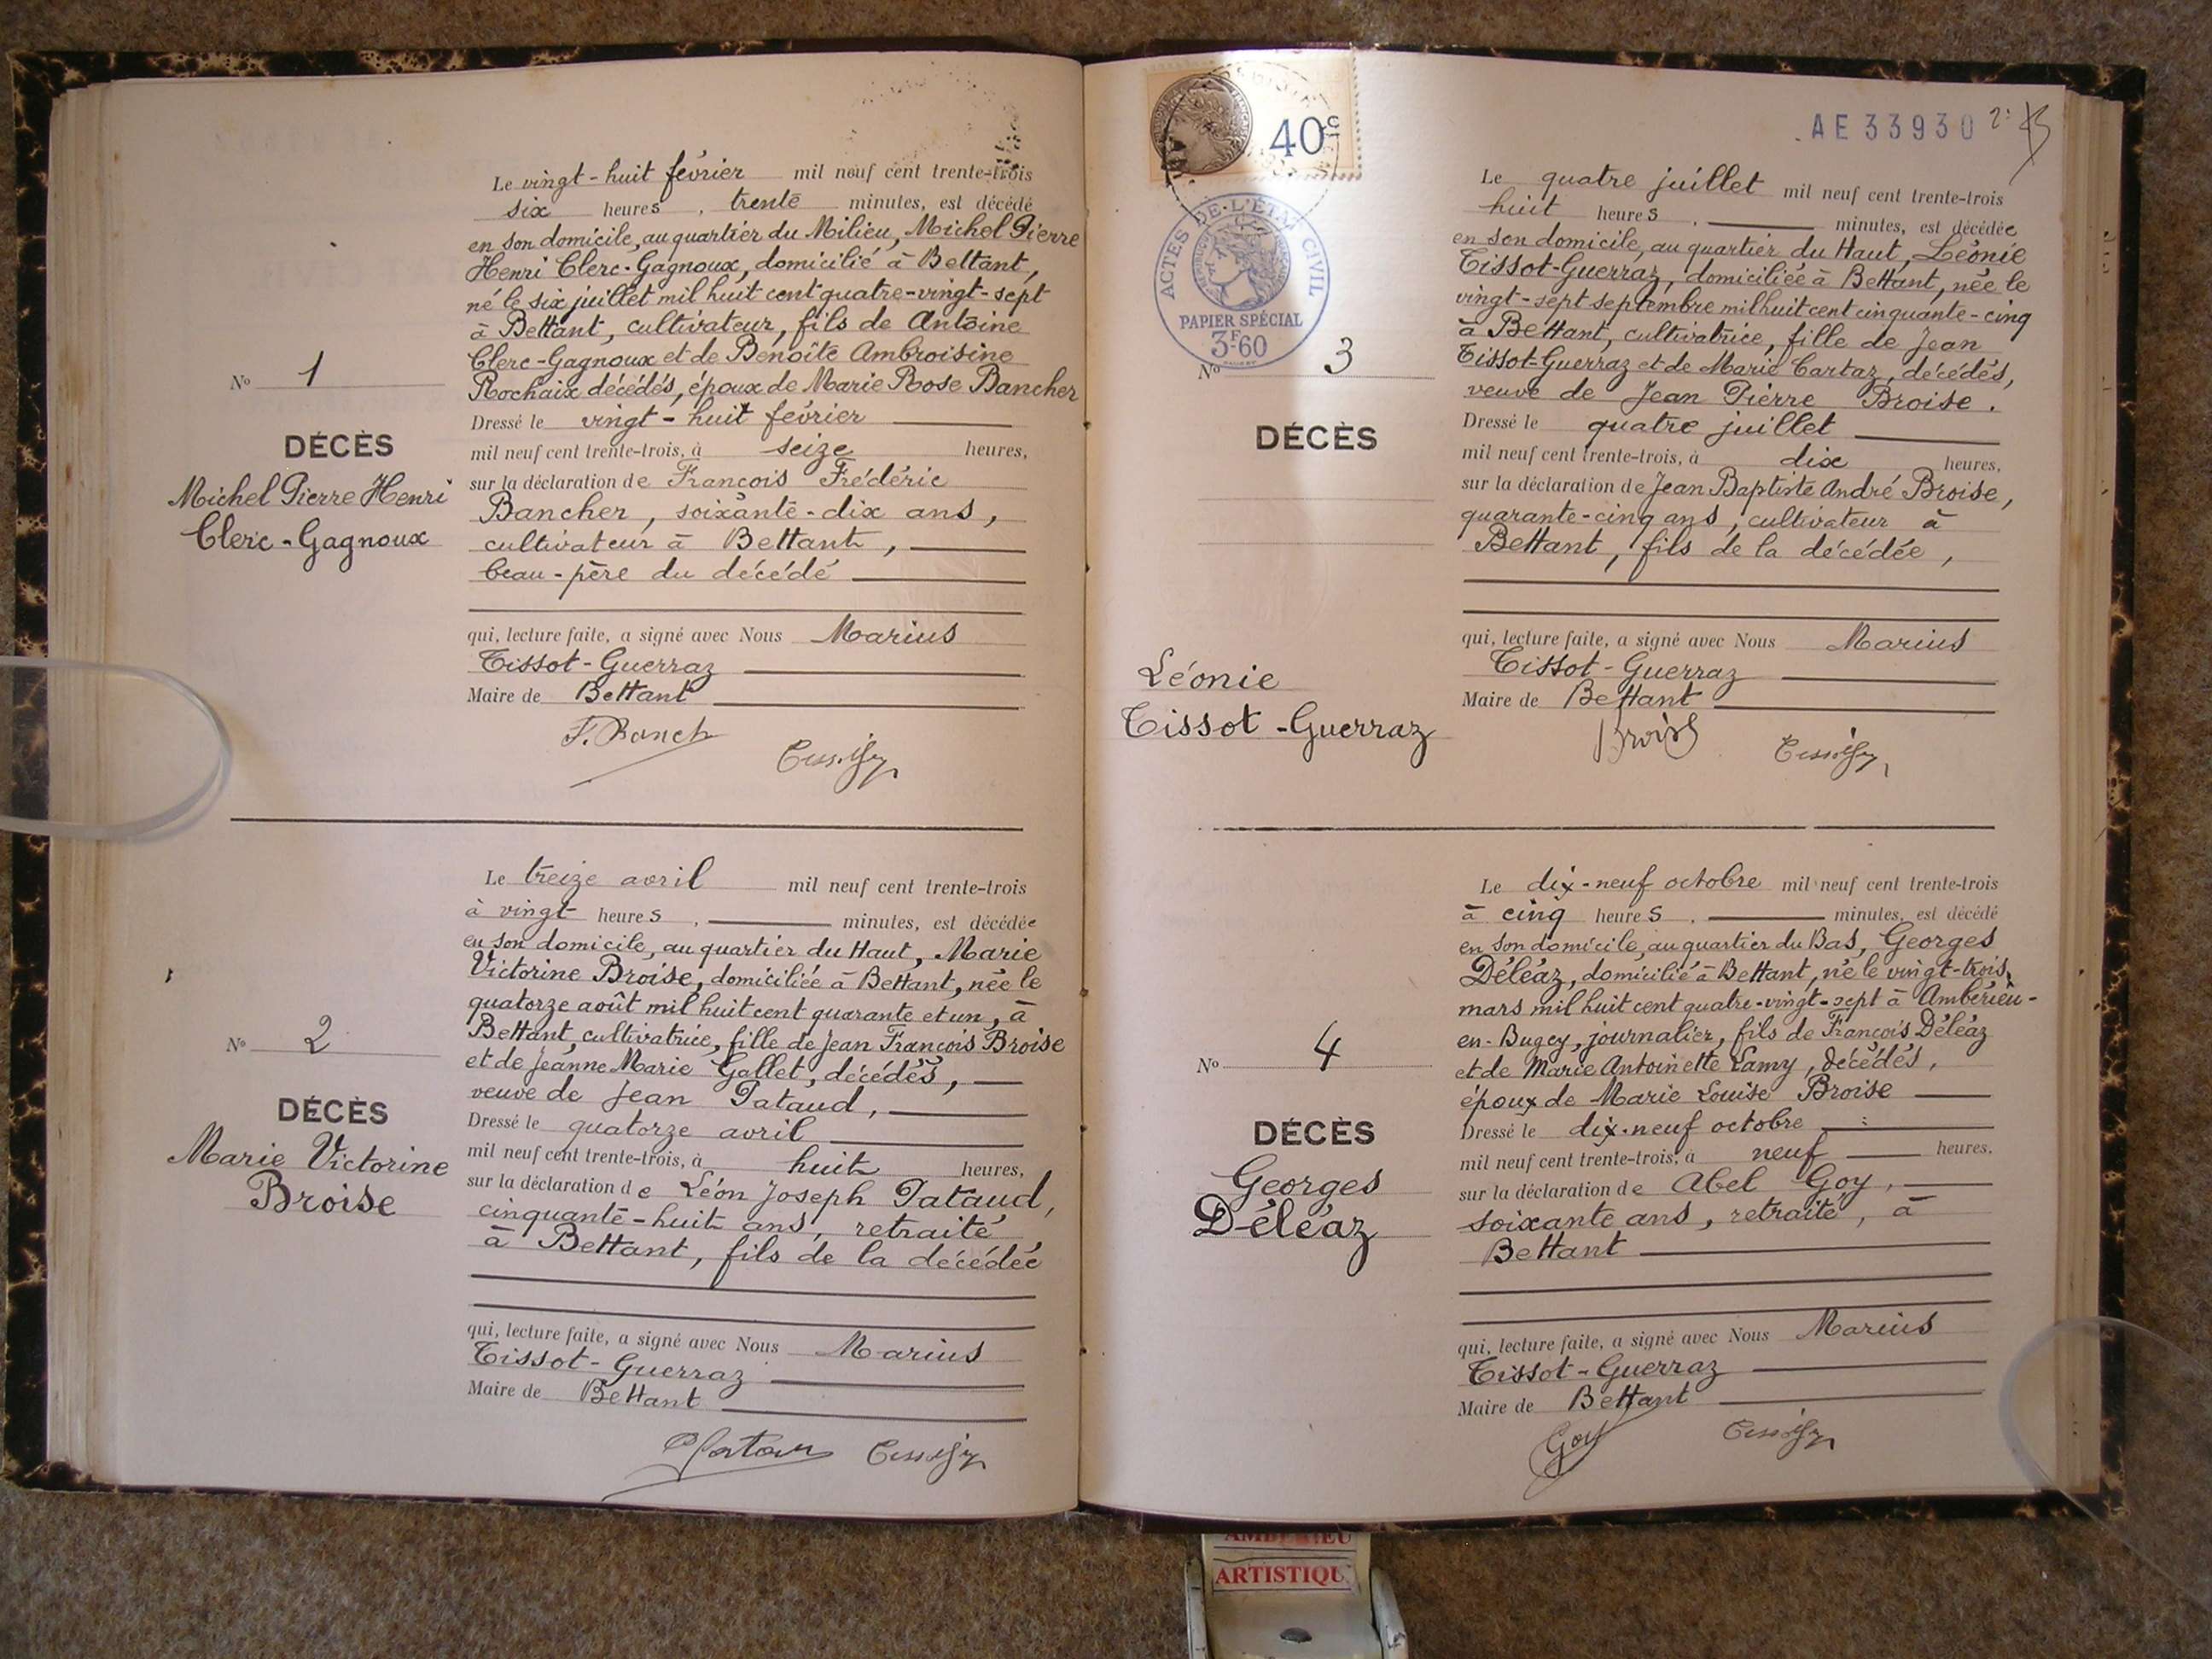 Le vingt-huit février mil neuf cent trente-trois
six heures, trente minutes, est décédé
en son domicile, au quartier du Milieu, Michel Pierre
Henri Clerc-Gagnoux, domicilié à Bettant,
né le six juillet mil huit cent quatre-vingt-sept
à Bettant, cultivateur, fils de Antoine
Clerc-Gagnoux et de Benoîte Ambroisine
Rochaix décédés, époux de Marie Rose Bancher
Nº 1
DÉCÈS
Michel Pierre Henri
Clerc-Gagnoux
Dressé le vingt-huit février
mil neuf cent trente-trois, à seize heures,
sur la déclaration de François Frédéric
Bancher, soixante-dix ans,
cultivateur à Bettant,
beau-père du décédé
qui, lecture faite, a signé avec Nous Marius
Tissot-Guerraz
Maire de Bettant
F. Banch
Le treize avril mil neuf cent trente-trois
à vingt heures, minutes, est décédée
en son domicile, au quartier du Haut, Marie
Victorine Broise, domiciliée à Bettant, née le
quatorze août mil huit cent quarante et un, à
Bettant, cultivatrice, fille de Jean François Broise
et de Jeanne Marie Gallet, décédés,
veuve de Jean Pataud,
Nº 2
DÉCÈS
Marie Victorine
Broise
Dressé le quatorze avril
mil neuf cent trente-trois, à huit heures,
sur la déclaration de Léon Joseph Pataud,
cinquante-huit ans, retraité
à Bettant, fils de la décédée
qui, lecture faite, a signé avec Nous Marius
Tissot-Guerraz
Maire de Bettant
40c
AE 33930
ACTES DE L'ÉTAT CIVIL
PAPIER SPÉCIAL
3F60
Le quatre juillet mil neuf cent trente-trois
huit heures. minutes, est décédée
en son domicile, au quartier du Haut, Léonie
Tissot-Guerraz, domiciliée à Bettant, née le
vingt-sept septembre mil huit cent cinquante-cinq
à Bettant, cultivatrice, fille de Jean
Tissot-Guerraz et de Marie Cartaz, décédés,
veuve de Jean Pierre Broise.
Nº 3
DÉCÈS
Léonie
Tissot-Guerraz
Dressé le quatre juillet
mil neuf cent trente-trois, à dix heures,
sur la déclaration de Jean Baptiste André Broise,
quarante-cinq ans, cultivateur à
Bettant, fils de la décédée,
qui, lecture faite, a signé avec Nous Marius
Tissot-Guerraz
Maire de Bettant
Broise
Le dix-neuf octobre mil neuf cent trente-trois
à cinq heures. minutes, est décédé
en son domicile, au quartier du Bas, Georges
Déléaz, domicilié à Bettant, né le vingt-trois
mars mil huit cent quatre-vingt-sept à Ambérieu-
en-Bugey, journalier, fils de François Déléaz
et de Marie Antoinette Lamy, décédés,
époux de Marie Louise Broise
Nº 4
DÉCÈS
Georges
Déléaz
Dressé le dix-neuf octobre
mil neuf cent trente-trois, à neuf heures.
sur la déclaration de Abel Goy,
soixante ans, retraité, à
Bettant
qui, lecture faite, a signé avec Nous Marius
Tissot-Guerraz
Maire de Bettant
Goy
AMBERIEU
ARTISTIQU